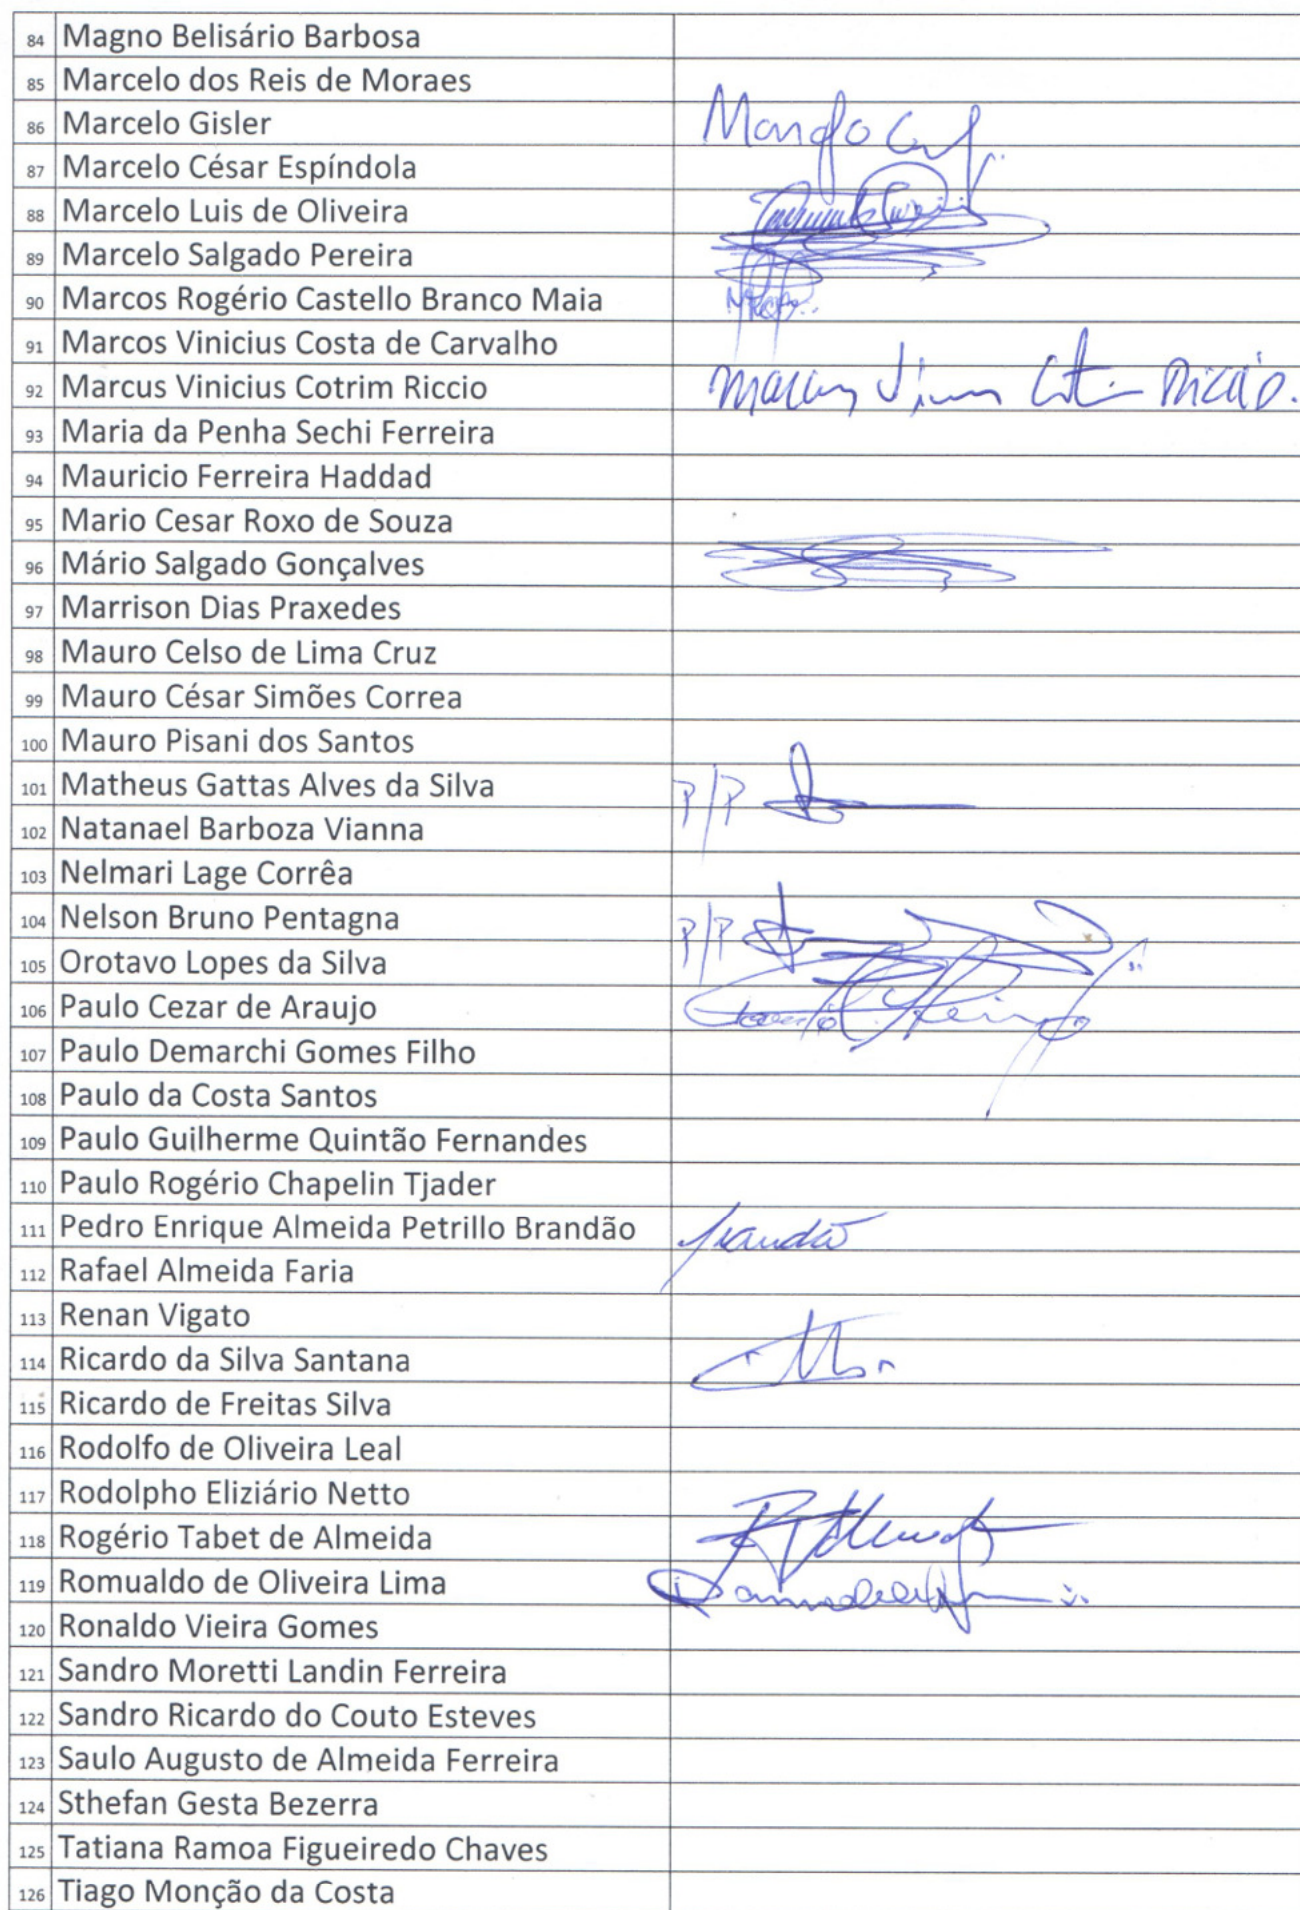 84 Magno Belisário Barbosa
85 Marcelo dos Reis de Moraes
86 Marcelo Gisler
87 Marcelo César Espíndola
88 Marcelo Luis de Oliveira
89 Marcelo Salgado Pereira
90 Marcos Rogério Castello Branco Maia
91 Marcos Vinicius Costa de Carvalho
92 Marcus Vinicius Cotrim Riccio
93 Maria da Penha Sechi Ferreira
94 Mauricio Ferreira Haddad
95 Mario Cesar Roxo de Souza
96 Mário Salgado Gonçalves
97 Marrison Dias Praxedes
98 Mauro Celso de Lima Cruz
99 Mauro César Simões Correa
100 Mauro Pisani dos Santos
101 Matheus Gattas Alves da Silva P/P
102 Natanael Barboza Vianna
103 Nelmari Lage Corrêa
104 Nelson Bruno Pentagna P/P
105 Orotavo Lopes da Silva
106 Paulo Cezar de Araujo
107 Paulo Demarchi Gomes Filho
108 Paulo da Costa Santos
109 Paulo Guilherme Quintão Fernandes
110 Paulo Rogério Chapelin Tjader
111 Pedro Enrique Almeida Petrillo Brandão
112 Rafael Almeida Faria
113 Renan Vigato
114 Ricardo da Silva Santana
115 Ricardo de Freitas Silva
116 Rodolfo de Oliveira Leal
117 Rodolpho Eliziário Netto
118 Rogério Tabet de Almeida
119 Romualdo de Oliveira Lima
120 Ronaldo Vieira Gomes
121 Sandro Moretti Landin Ferreira
122 Sandro Ricardo do Couto Esteves
123 Saulo Augusto de Almeida Ferreira
124 Sthefan Gesta Bezerra
125 Tatiana Ramoa Figueiredo Chaves
126 Tiago Monção da Costa